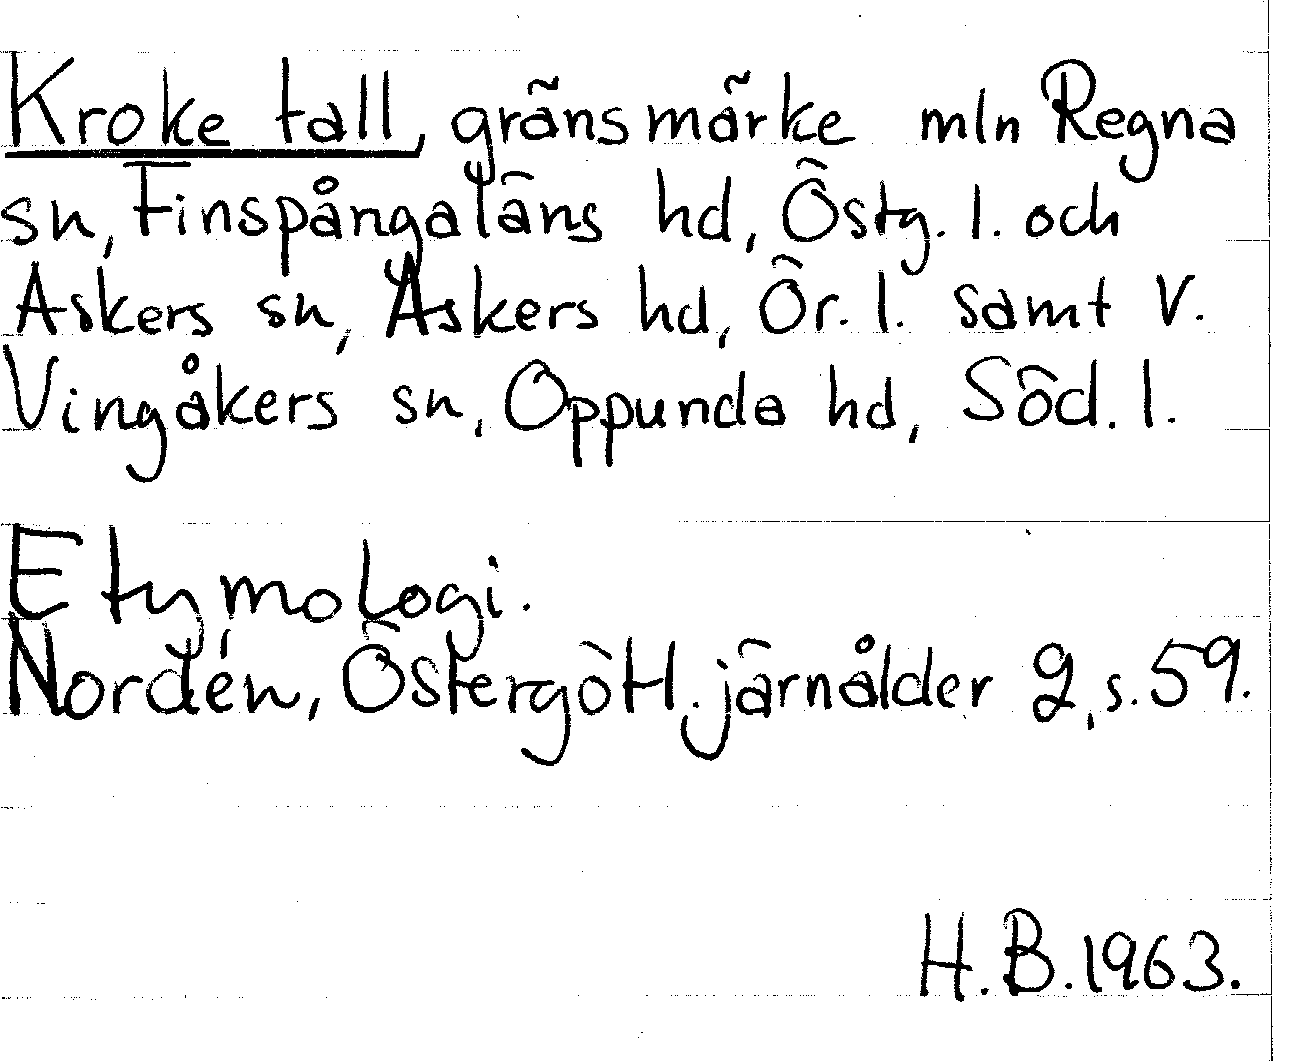 Kroke tall, gränsmärke mln Regna
sn, Finspångaläns hd, Östg. l. och
Askers sn, Askers hd, Ör. l. samt V.
Vingåkers sn, Oppunda hd, Söd. l.
Etymologi.
Nordén, Östergötl. järnålder 2, s. 59.
H.B. 1963.